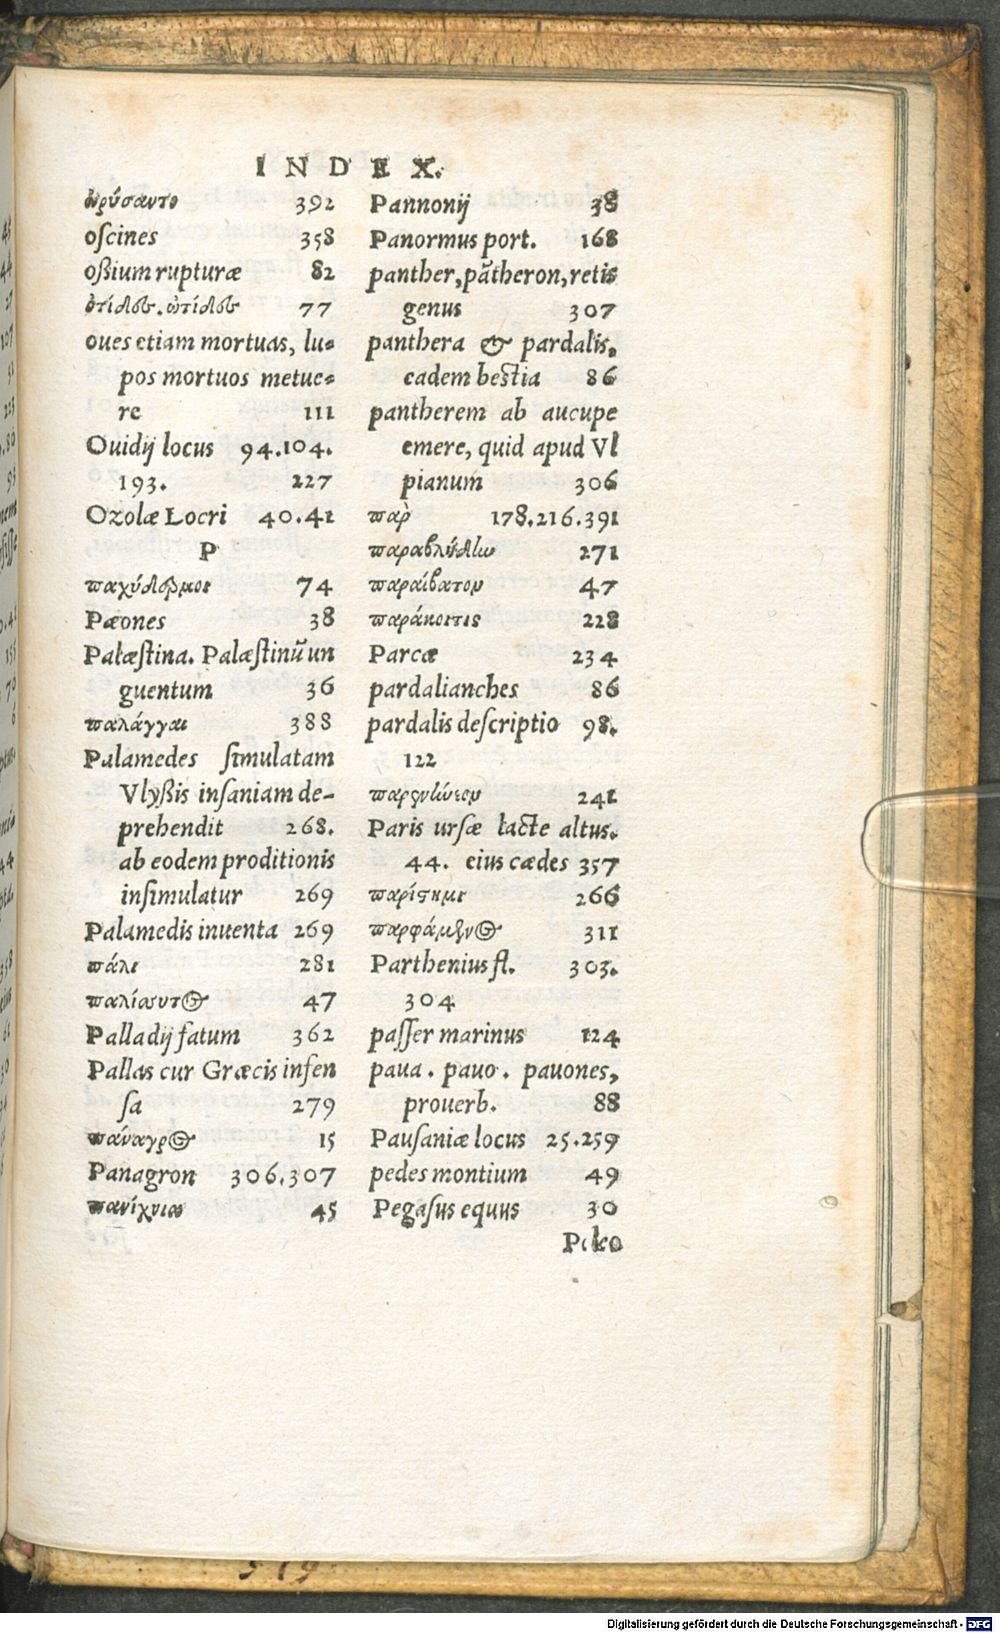 INDEX.
ὠρύσαντο 392
oſcines 358
oßium rupturæ 82
ὀτίδος. ὠτίδος 77
oues etiam mortuas, lu-
pos mortuos metue-
re 111
Ouidij locus 94.104.
193. 227
Ozolæ Locri 40.41
P
παχύδερμοι 74
Pæones 38
Palæſtina. Palæſtinũ un
guentum 36
παλάγγαι 388
Palamedes ſimulatam
Vlyßis inſaniam de-
prehendit 268.
ab eodem proditionis
inſimulatur 269
Palamedis inuenta 269
πάλι 281
παλίσσυτος 47
Palladij fatum 362
Pallas cur Græcis infen
ſa 279
πάναγρος 15
Panagron 306.307
πανίχνια 45
Pannonij 38
Panormus port. 168
panther, pãtheron, retis
genus 307
panthera & pardalis,
eadem beſtia 86
pantherem ab aucupe
emere, quid apud Vl
pianum 306
παρ 178.216.391
παραβλύδην 271
παραίβατου 47
παράκοιτις 228
Parcæ 234
pardalianches 86
pardalis deſcriptio 98.
122
241
Paris urſæ lacte altus.
44. eius cædes 357
παρίστημι 266
παρφάμενος 311
Parthenius fl. 303.
304
paſſer marinus 124
paua. pauo. pauones,
prouerb. 88
Pauſaniæ locus 25.259
pedes montium 49
Pegaſus equus 30
4
519
Digitalisierung gefördert durch die Deutsche Forschungsgemeinschaft - DFG